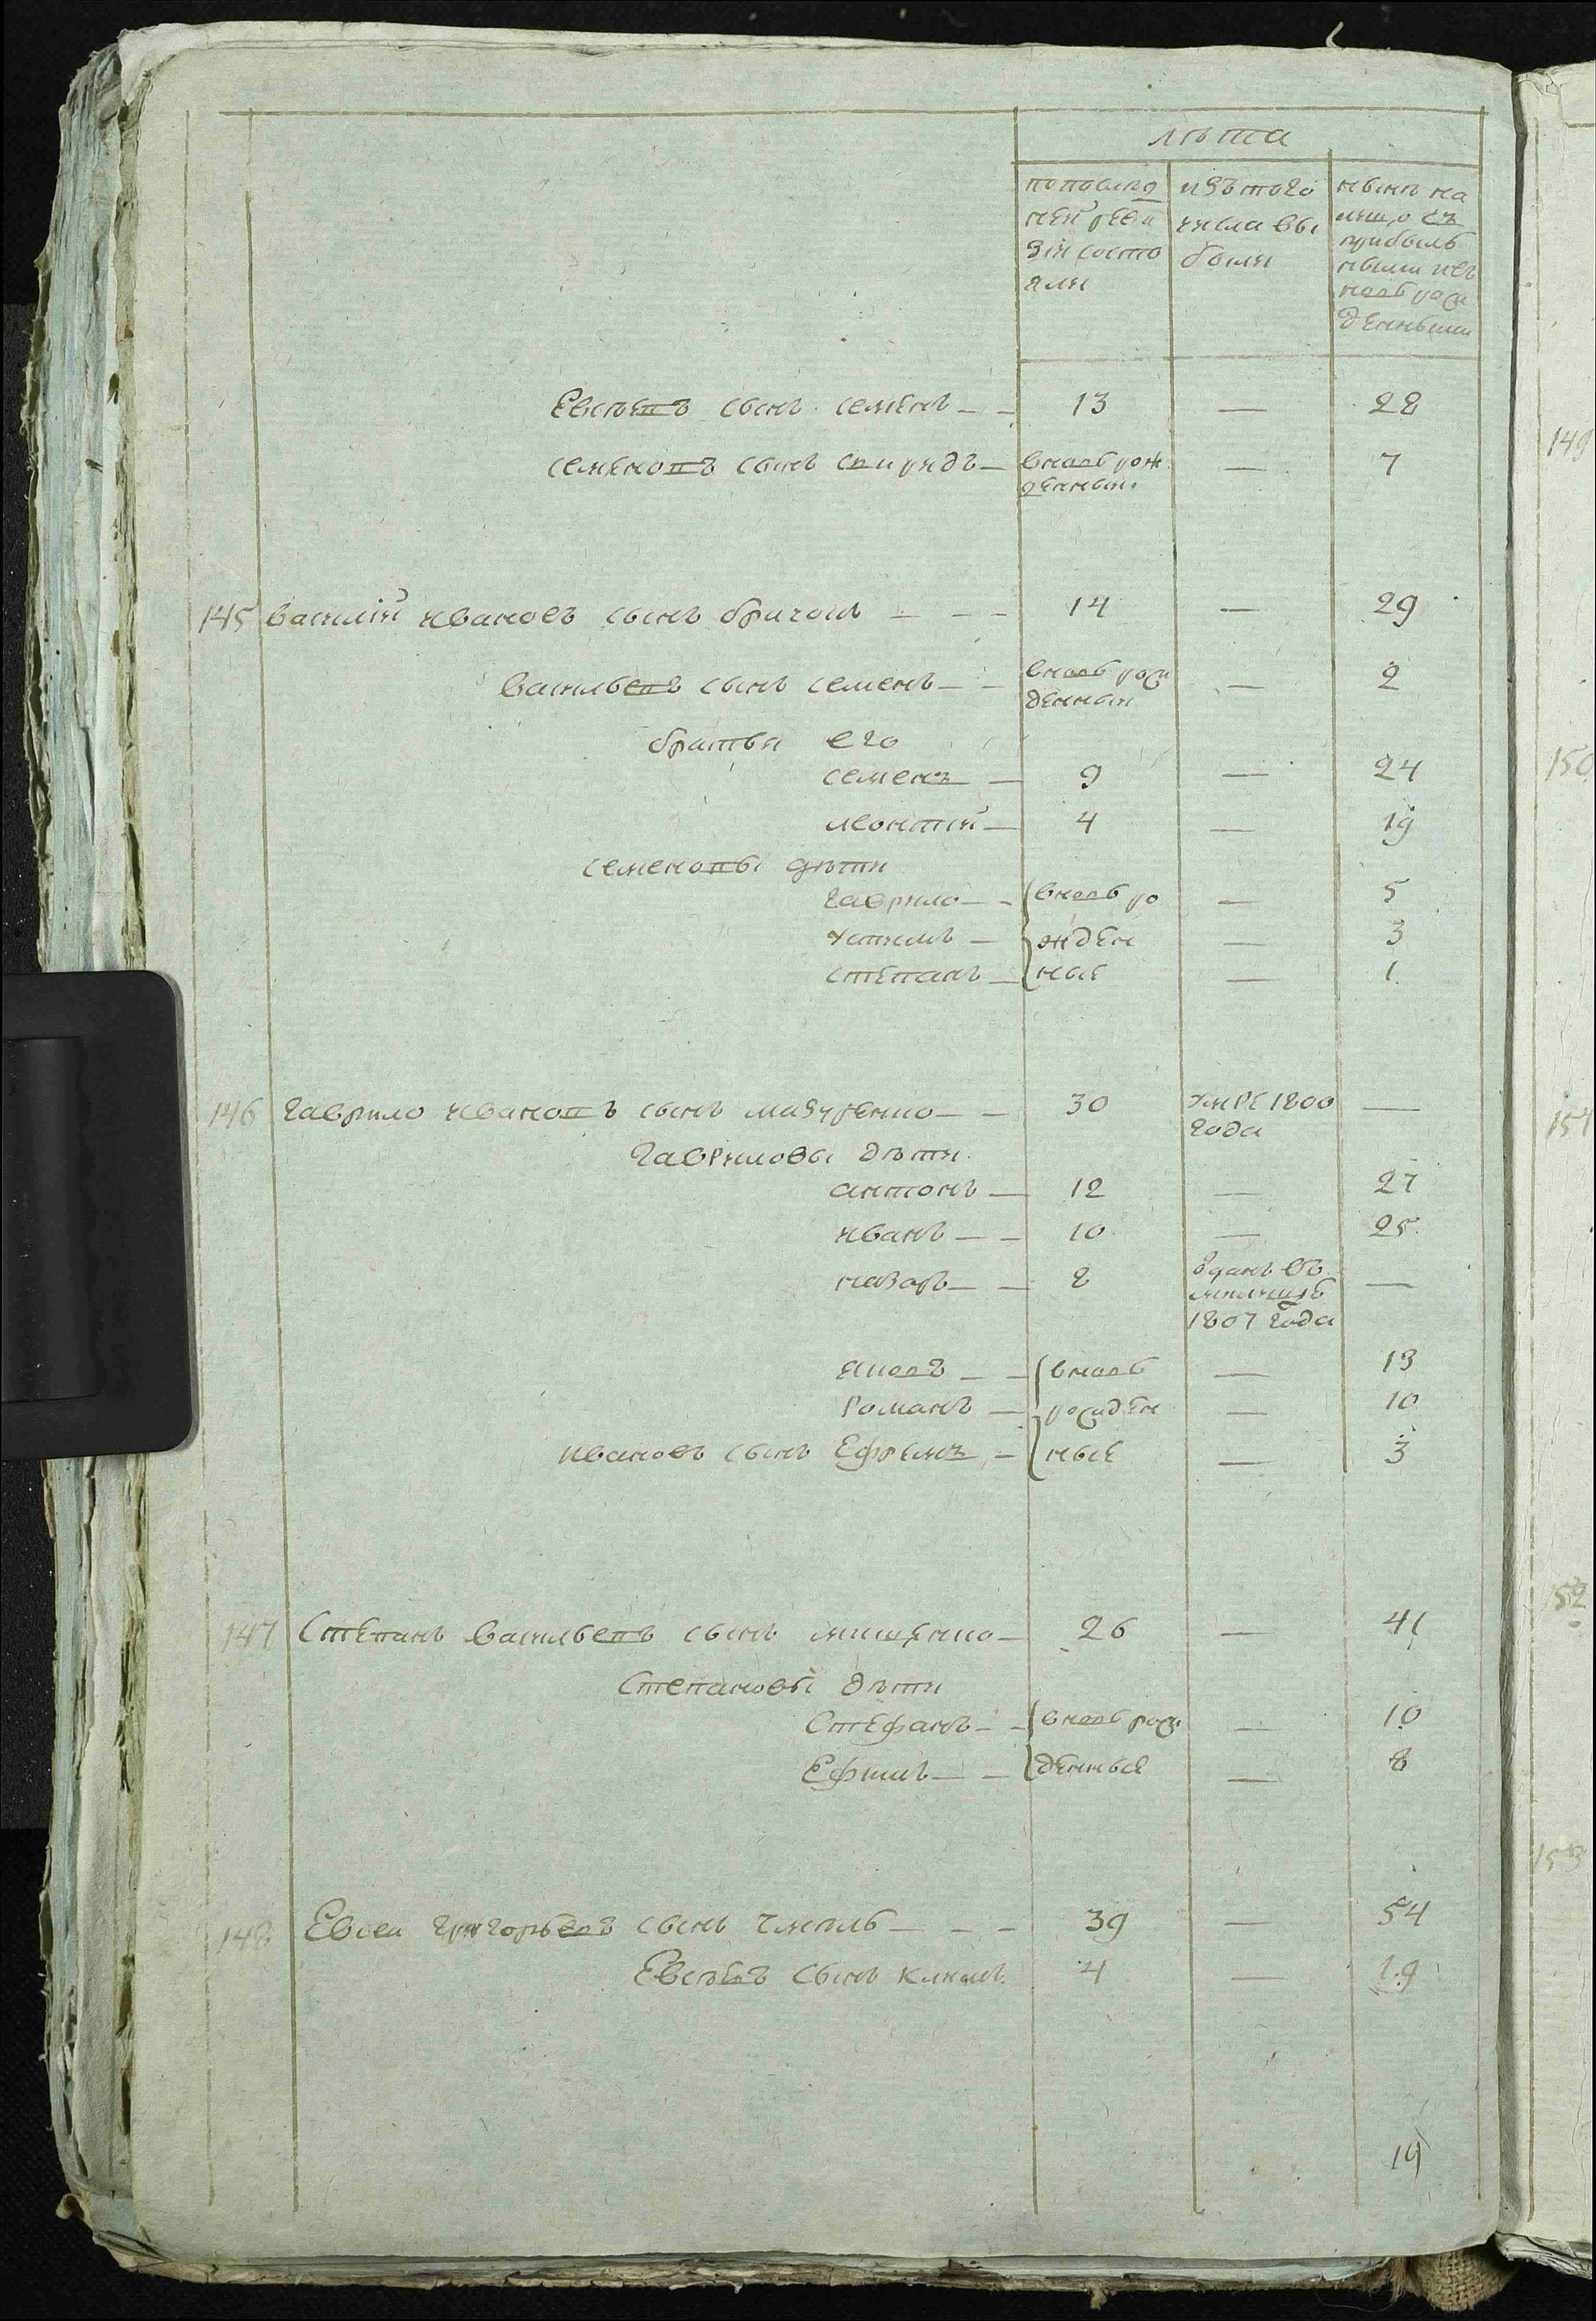 лѣта
попослед
ней реви
зіи состо
яли
изъ того
числа вы
были
нынѣ на
лицо съ
прибыль
ными и
вновь рож
денными
Евсѣевъ сынъ семенъ — — 13 — 28
семеновъ сынъ спиридъ — вновь рож — 7
денный
145 василій ивановъ сынъ — — — 14 — 29
васильевъ сынъ семенъ — — вновь рож — 2
денный
братья его
семенъ — 9 — 24
леонтій — 4 — 19
семеновы дѣти
гаврило — — вновь ро — 5
устимъ — жден — 3
степанъ — ные — 1
146 гаврило ивановъ сынъ мазуренко — — 30 умре 1800 —
года
гавриловы дѣти
антонъ — 12 — 27
иванъ — — 10 — 25
назаръ — — 8 отданъ въ —
милицію
1807 года
яковъ — — вновь — 13
романъ — рожден — 10
ивановъ сынъ Ефремъ — ные — 3
147 Степанъ васильевъ сынъ мищенко — 26 — 41
Степановы дѣти
Стефанъ — — вновь рож — 10
Ефимъ — — денные — 8
148 Евсей григорьевъ сынъ — — — 39 — 54
Евсѣевъ сынъ климъ 4 — 19
19
149
150
151
152
153